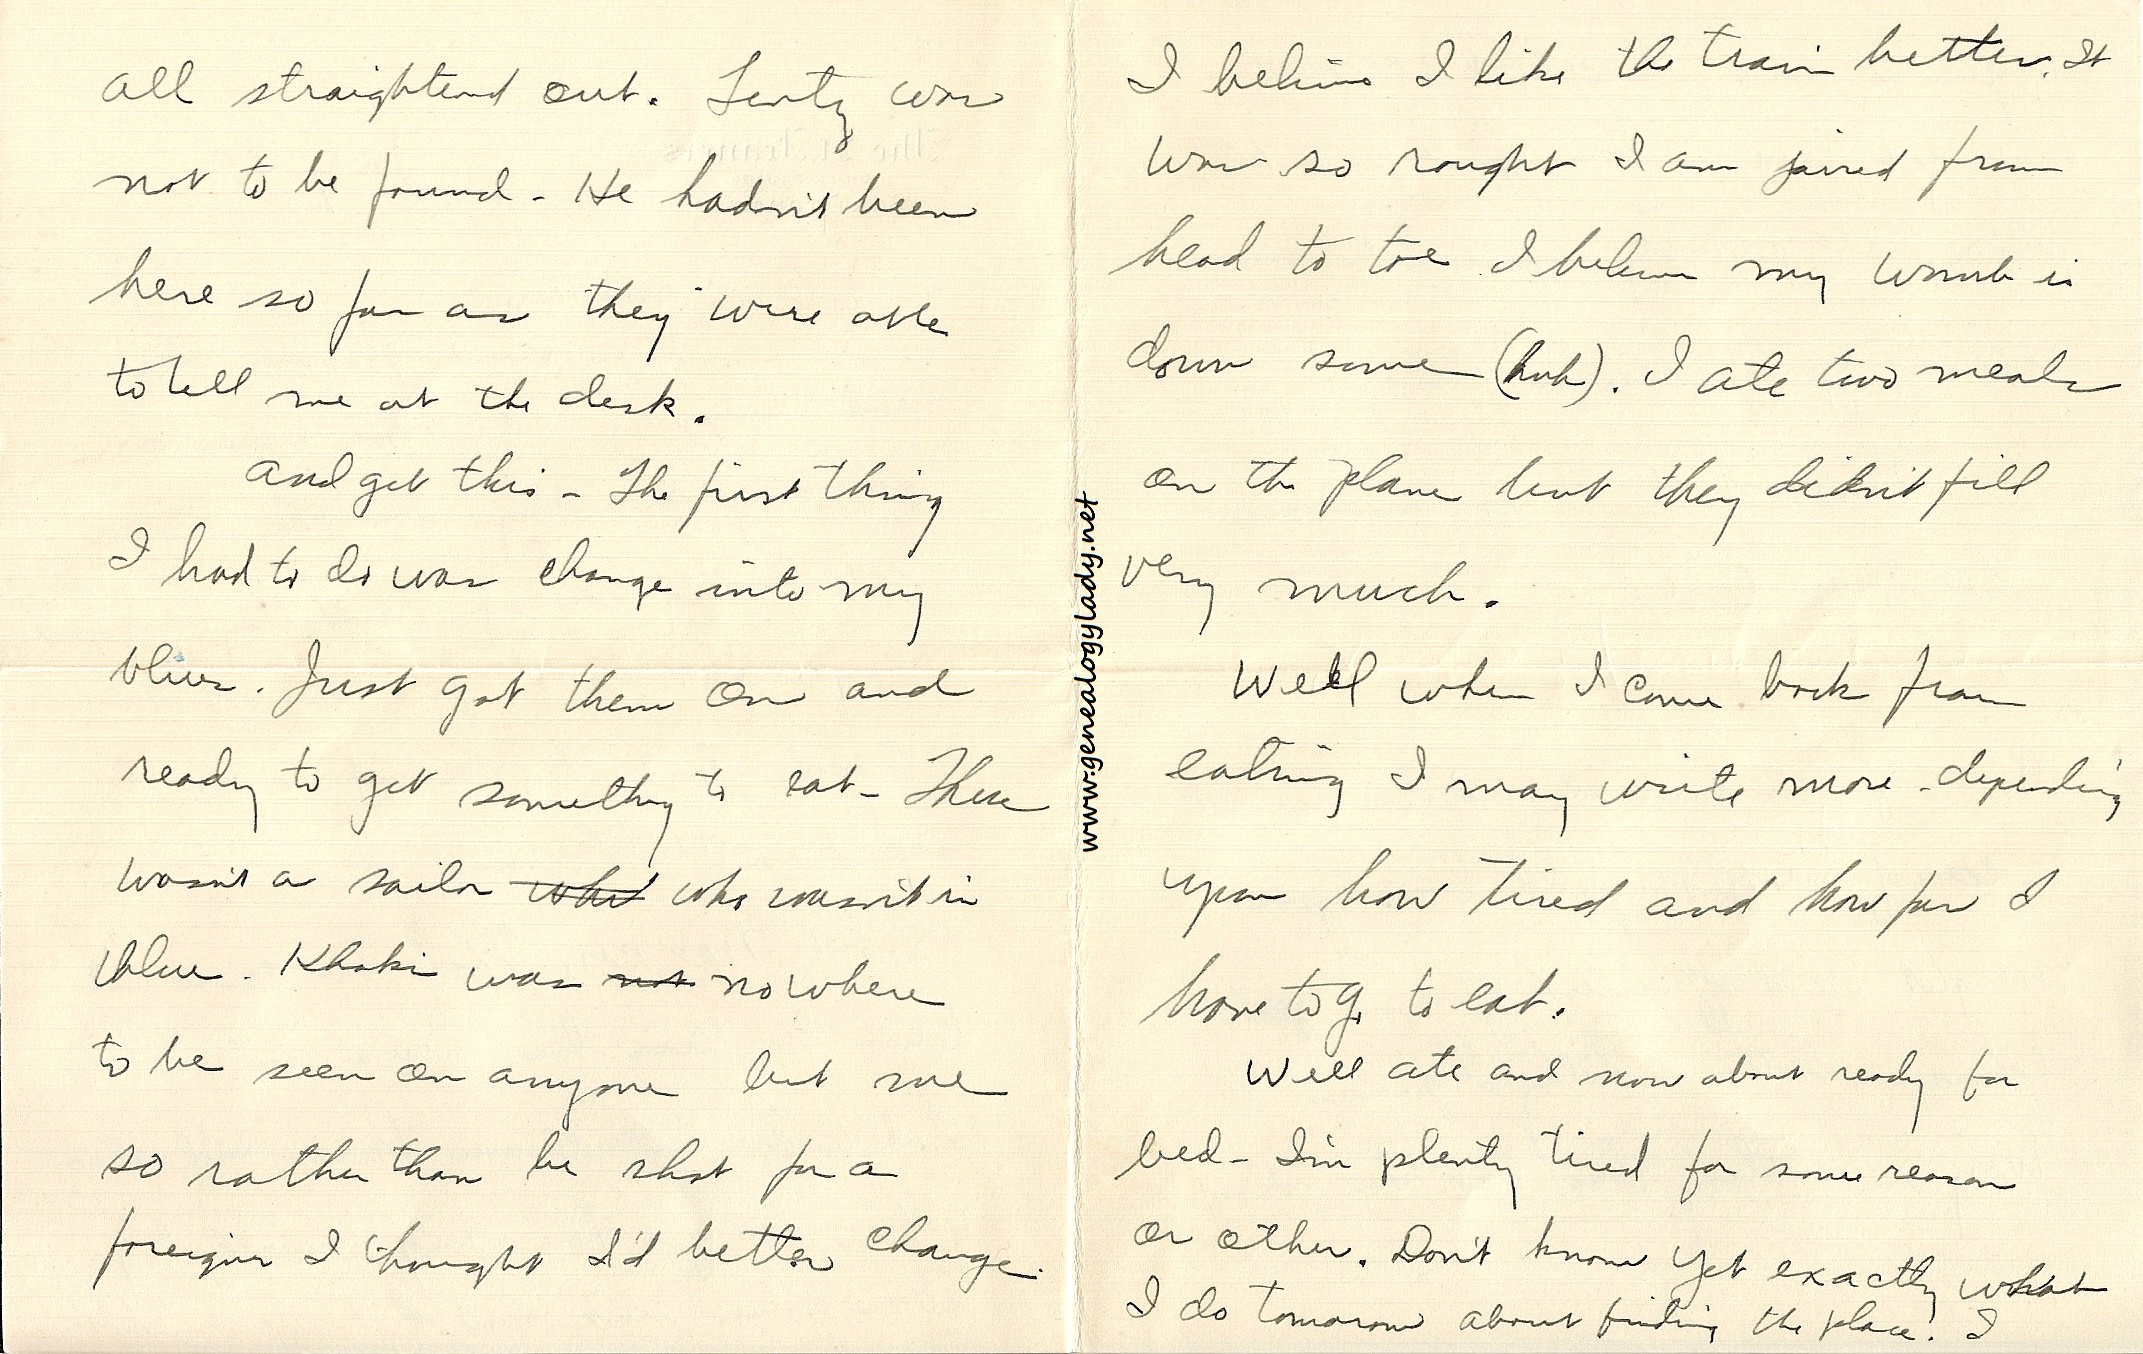 all straightend out. Lentz was
not to be found - He hadn't been
here so far as they were able
to tell me at the desk.
and get this - The first thing
I had to do was change into my
blues. Just got them on and
ready to get something to eat - There
wasn't a sailor who who wasn't in
blue. Khaki was not nowhere
to be seen on anyone but me
so rather than be shot for a
foreigner I thought I'd better change.
I believe I like the train better. It
was so rought I am jarred from
head to toe I believe my womb is
down some (huh). I ate two meals
on the plane but they didn't fill
very much.
Well when I come back from
eating I may write more - depending
upon how tired and how far I
have to go to eat.
Well ate and now about ready for
bed - I'm plenty tired for some reason
or other. Don't know yet exactly what
I do tomorrow about finding the place. I
www.genealogylady.net